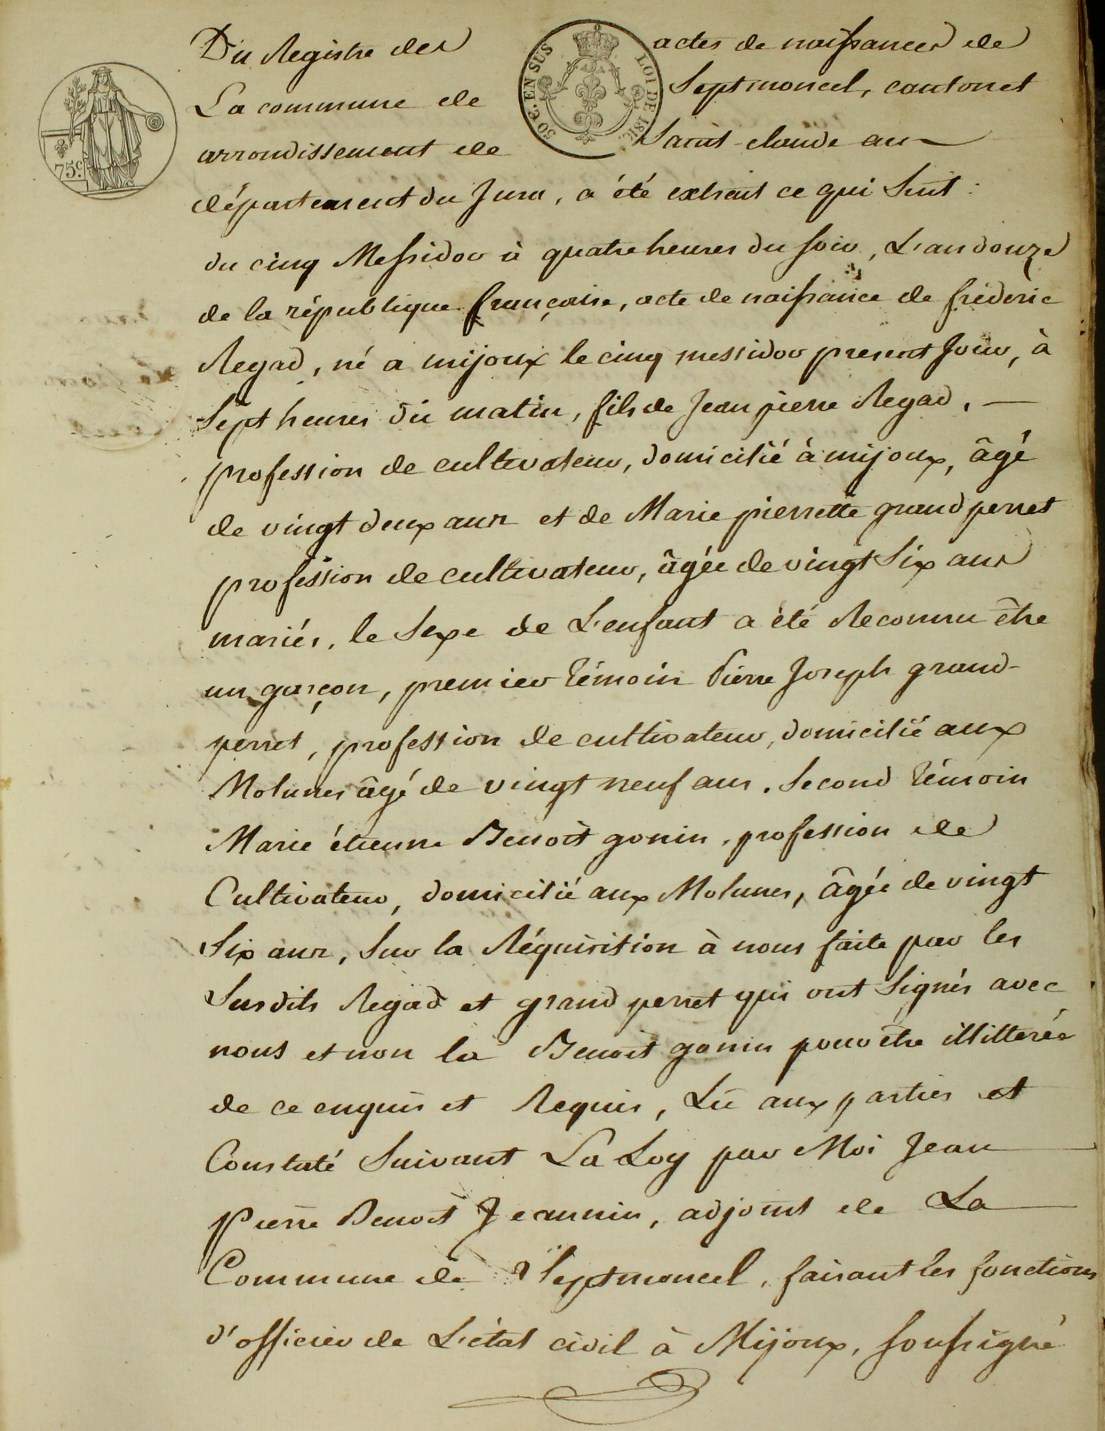 Du Registre des actes de naissances de
La commune de Septmoncel, canton et
arrondissement de Saint-claude au
département du Jura, a été extrait ce qui suit :
du cinq Messidor à quatre heures du soir, L'an douze
de la république française, acte de naissance de fréderic
Regad, né a mijoux le cinq messidor present Jour, à
Sept heures du matin, fils de Jean pierre Regad,
profession de cultivateur, domicilié à mijoux, âgé
de vingt deux ans et de Marie pierrette grand perret
profession de cultivateur, âgée de vingt Six ans
mariés, le Sexe de L'enfant a été Reconnu être
un garçon, premier témoin Pierre Joseph grand-
perret, profession de cultivateur, domicilié aux
Molunes âgé de vingt neuf ans, Second témoin
Marie étienne Benoit gonin, profession de
Cultivateur, domicilié aux Molunes, âgée de vingt
Six ans, Sur la Réquisition à nous faite par les
Susdits Regad et grand perret qui ont Signés avec
nous et non la Benoit gonin pour être illitterée
de ce enquis et Requis, Lû aux parties et
Constaté Suivant La Loy par Moi Jean
Pierre Benoit Jeannin, adjoint de La
Commune de Septmoncel, faisant les fonctions
d'officier de L'état civil à Mijoux, soussigné
75c.
50 C. EN SUS
LOI DE 1816